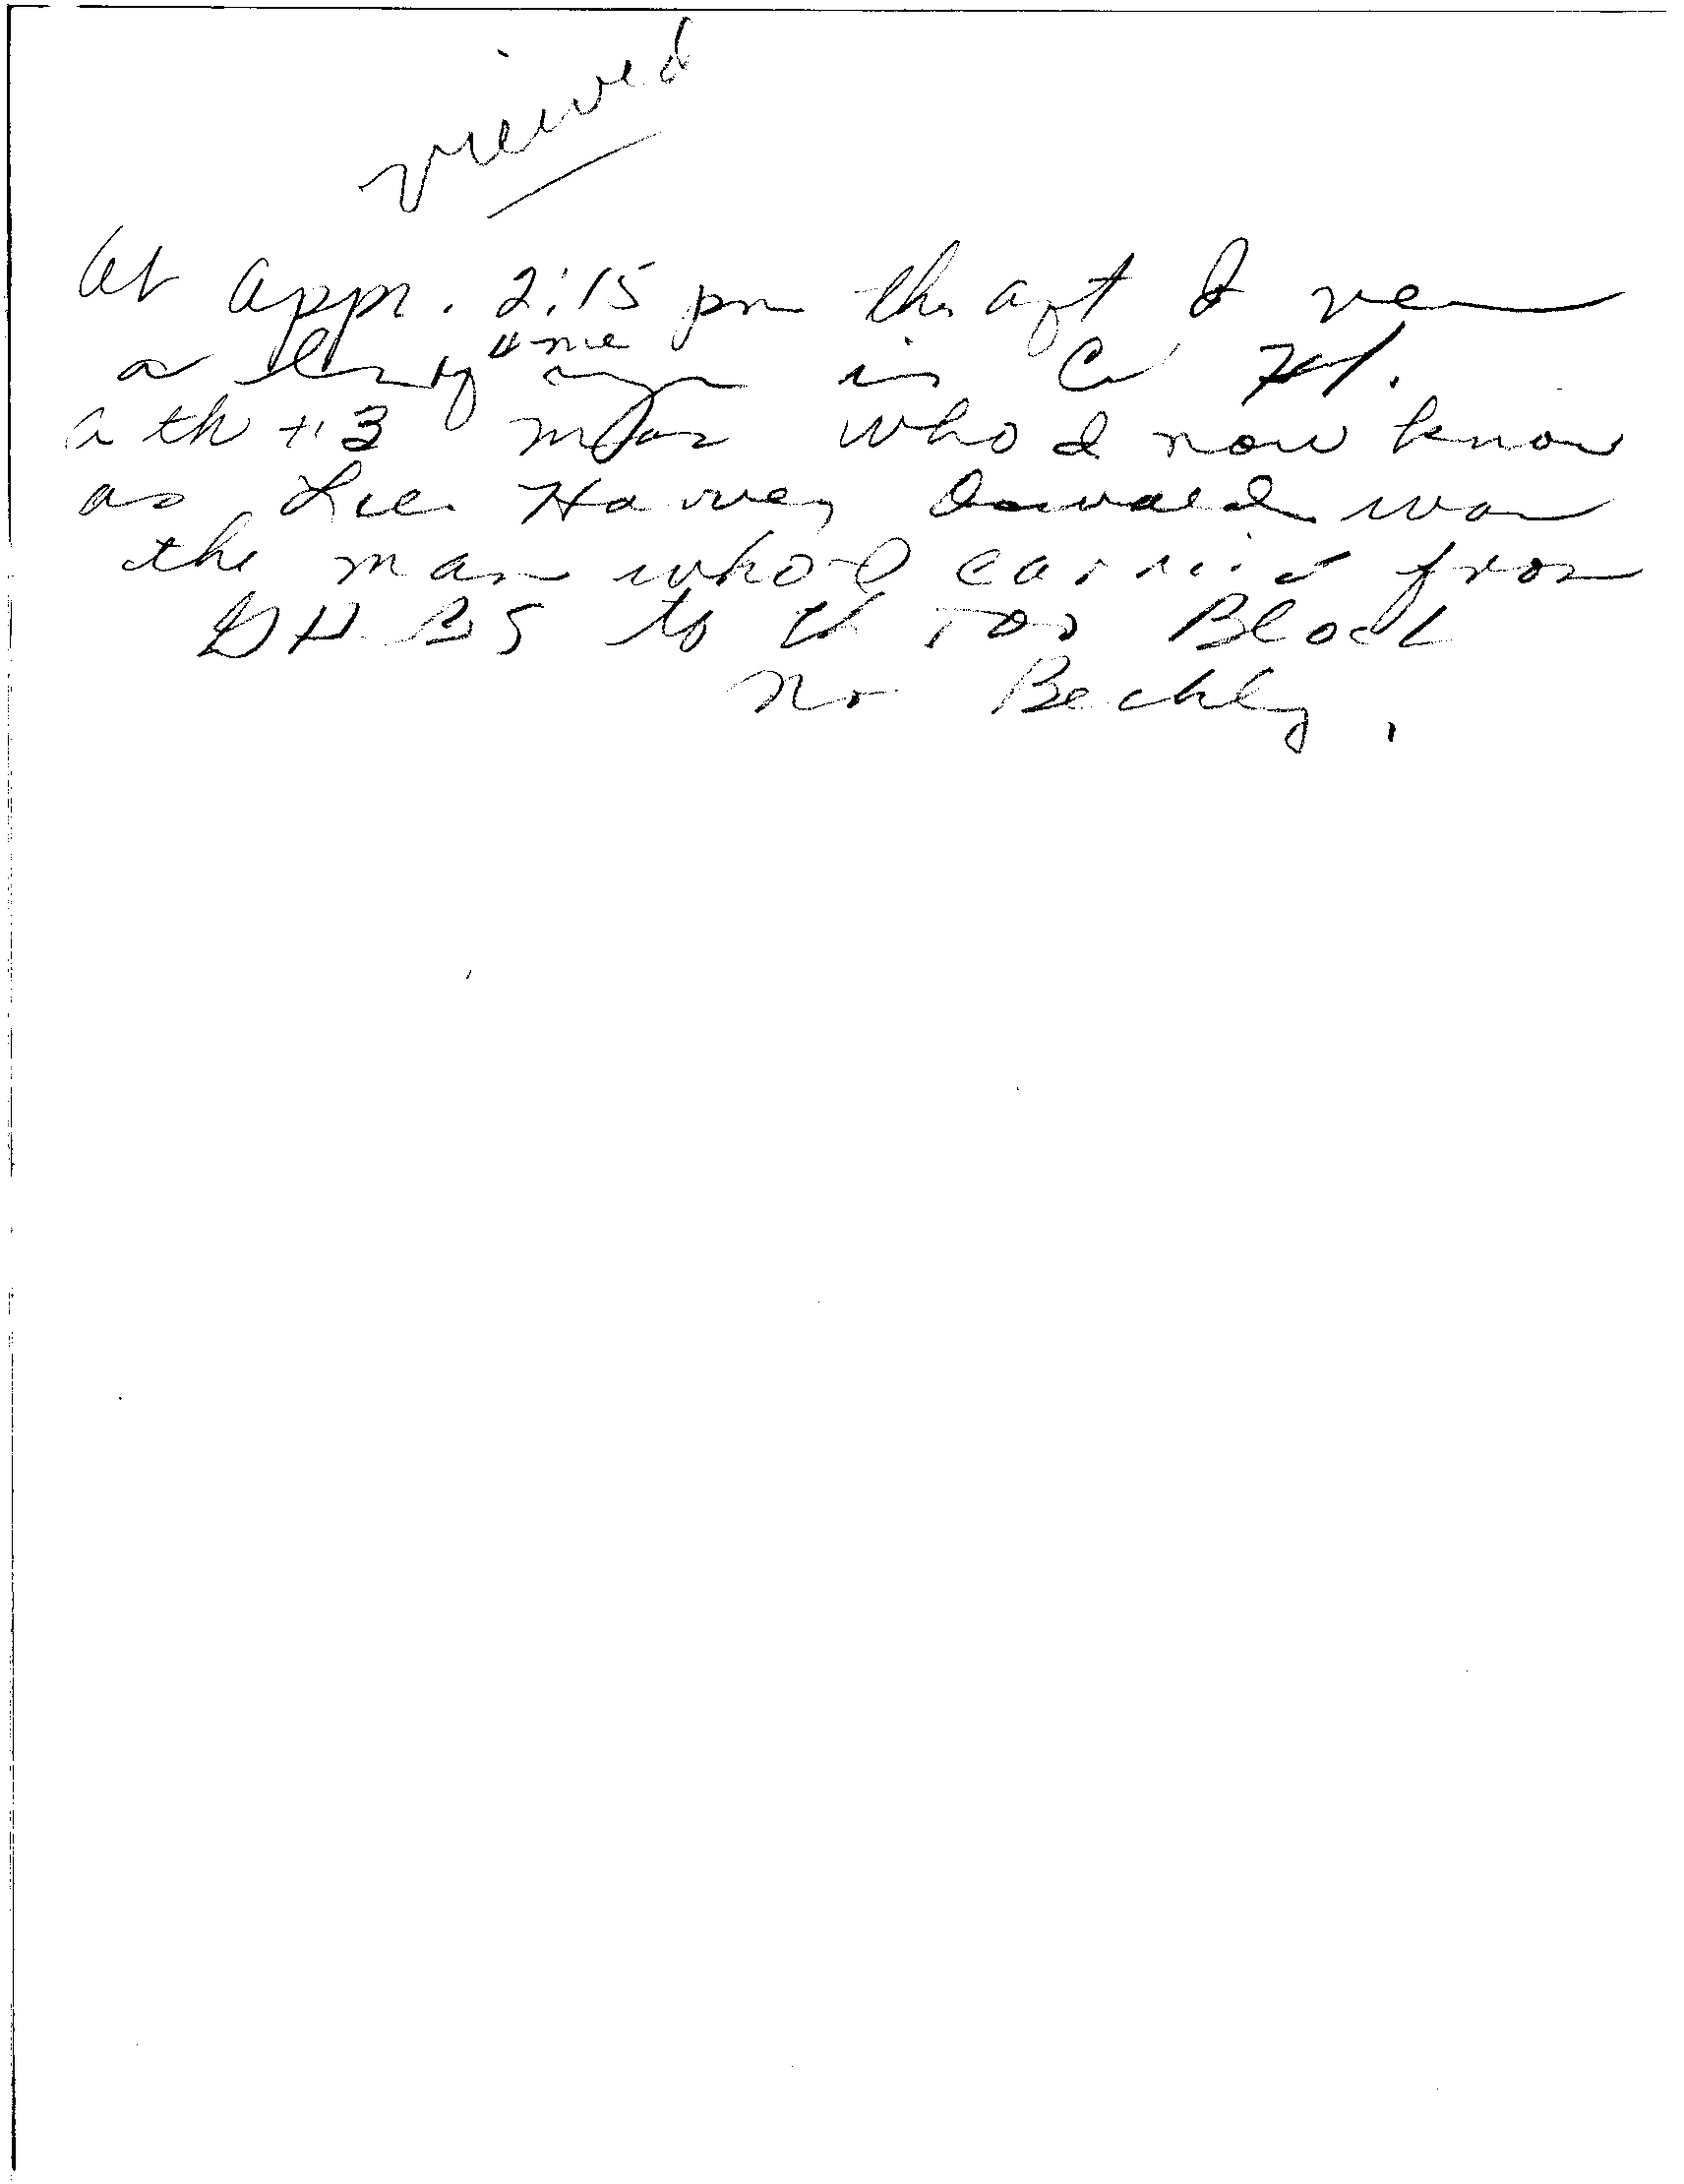 viewed
At appr. 2:15 pm the aft I
a line up in C H.
a th # 3 man who I now know
as Lee Harvey Oswald was
the man who I carried from
G H B S to th 500 Block
No Beckly.